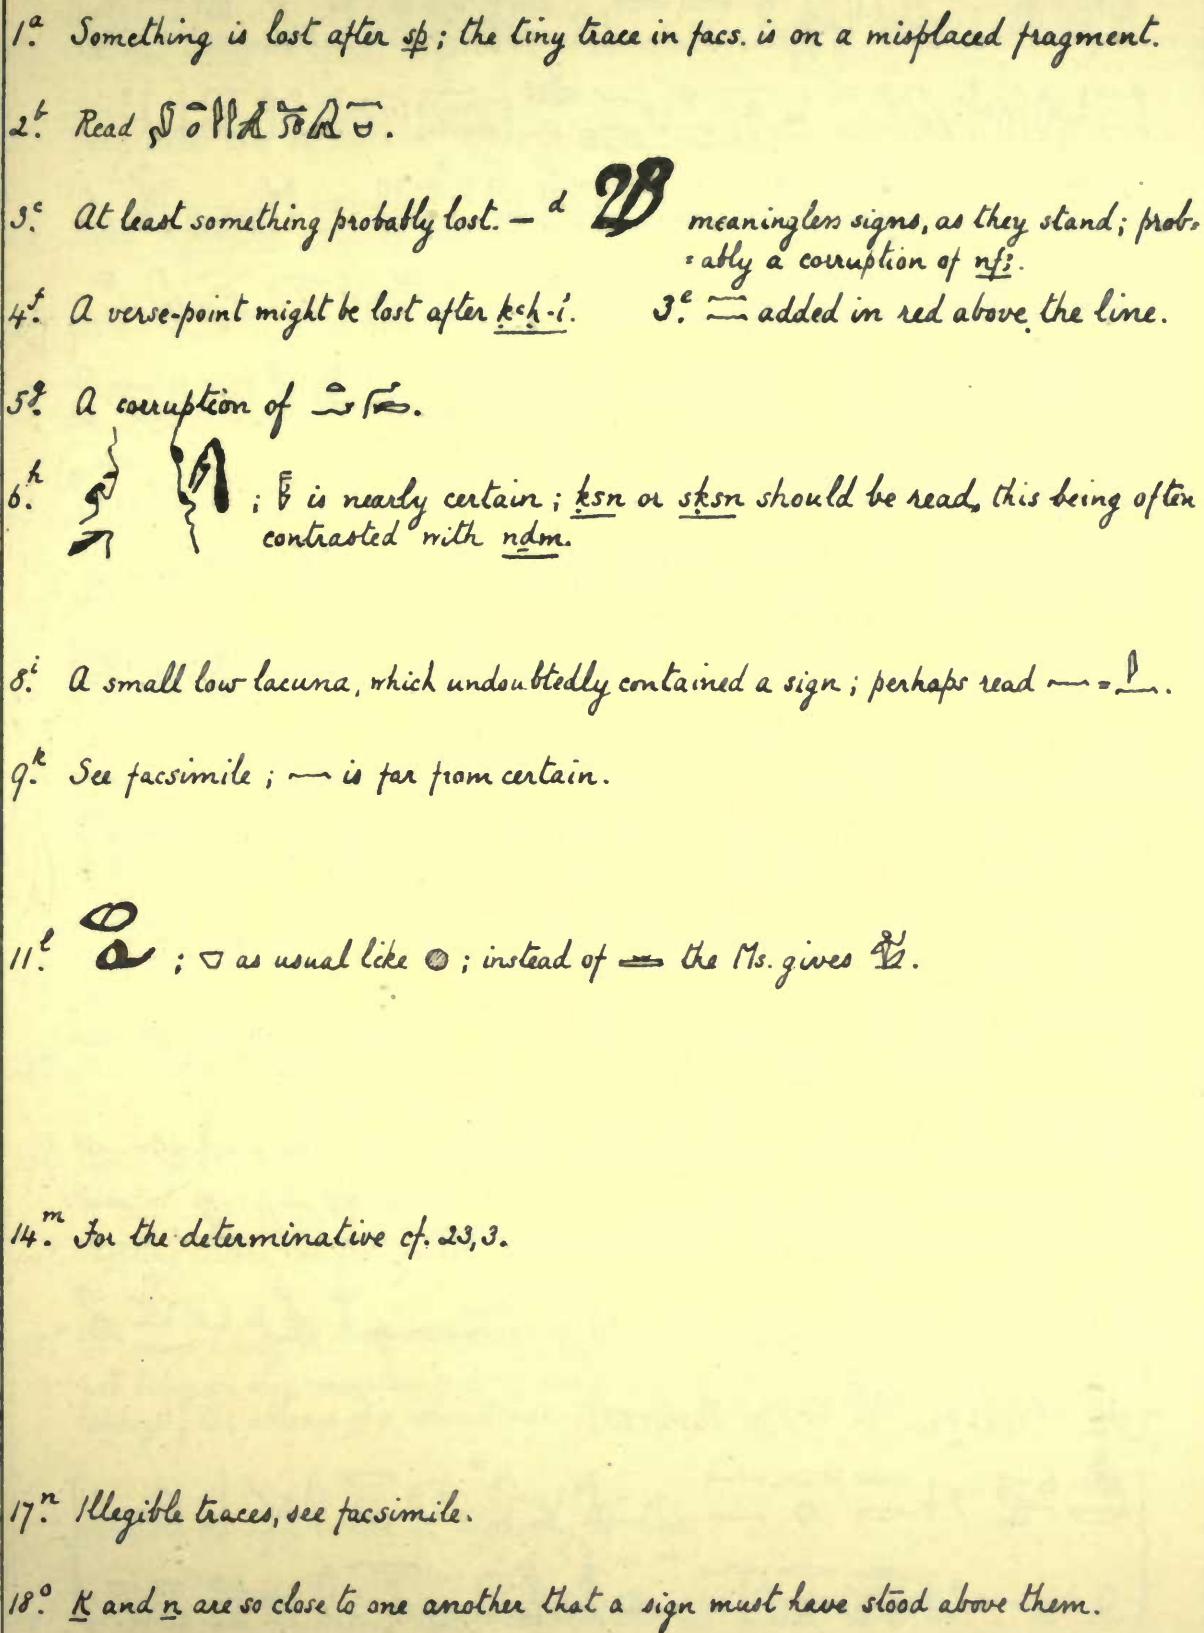 1.a Something is lost after sp; the tiny trace in facs. is on a misplaced fragment.
2.b Read .
3.c At least something probably lost. — d meaningless signs, as they stand; prob=
=ably a corruption of nfꜣ.
4.f A verse-point might be lost after ḳꜥḥ·ı͗. 3.e added in red above the line.
5.g A corruption of .
6.h ; is nearly certain; ḳsn or sḳsn should be read, this being often
contrasted with nḏm.
8.i A small low lacuna, which undoubtedly contained a sign; perhaps read = .
9.k See facsimile; is far from certain.
11.l ; as usual like ; instead of the Ms. gives .
14.m For the determinative cf. 23,3.
17.n Illegible traces, see facsimile.
18.o K and n are so close to one another that a sign must have stood above them.